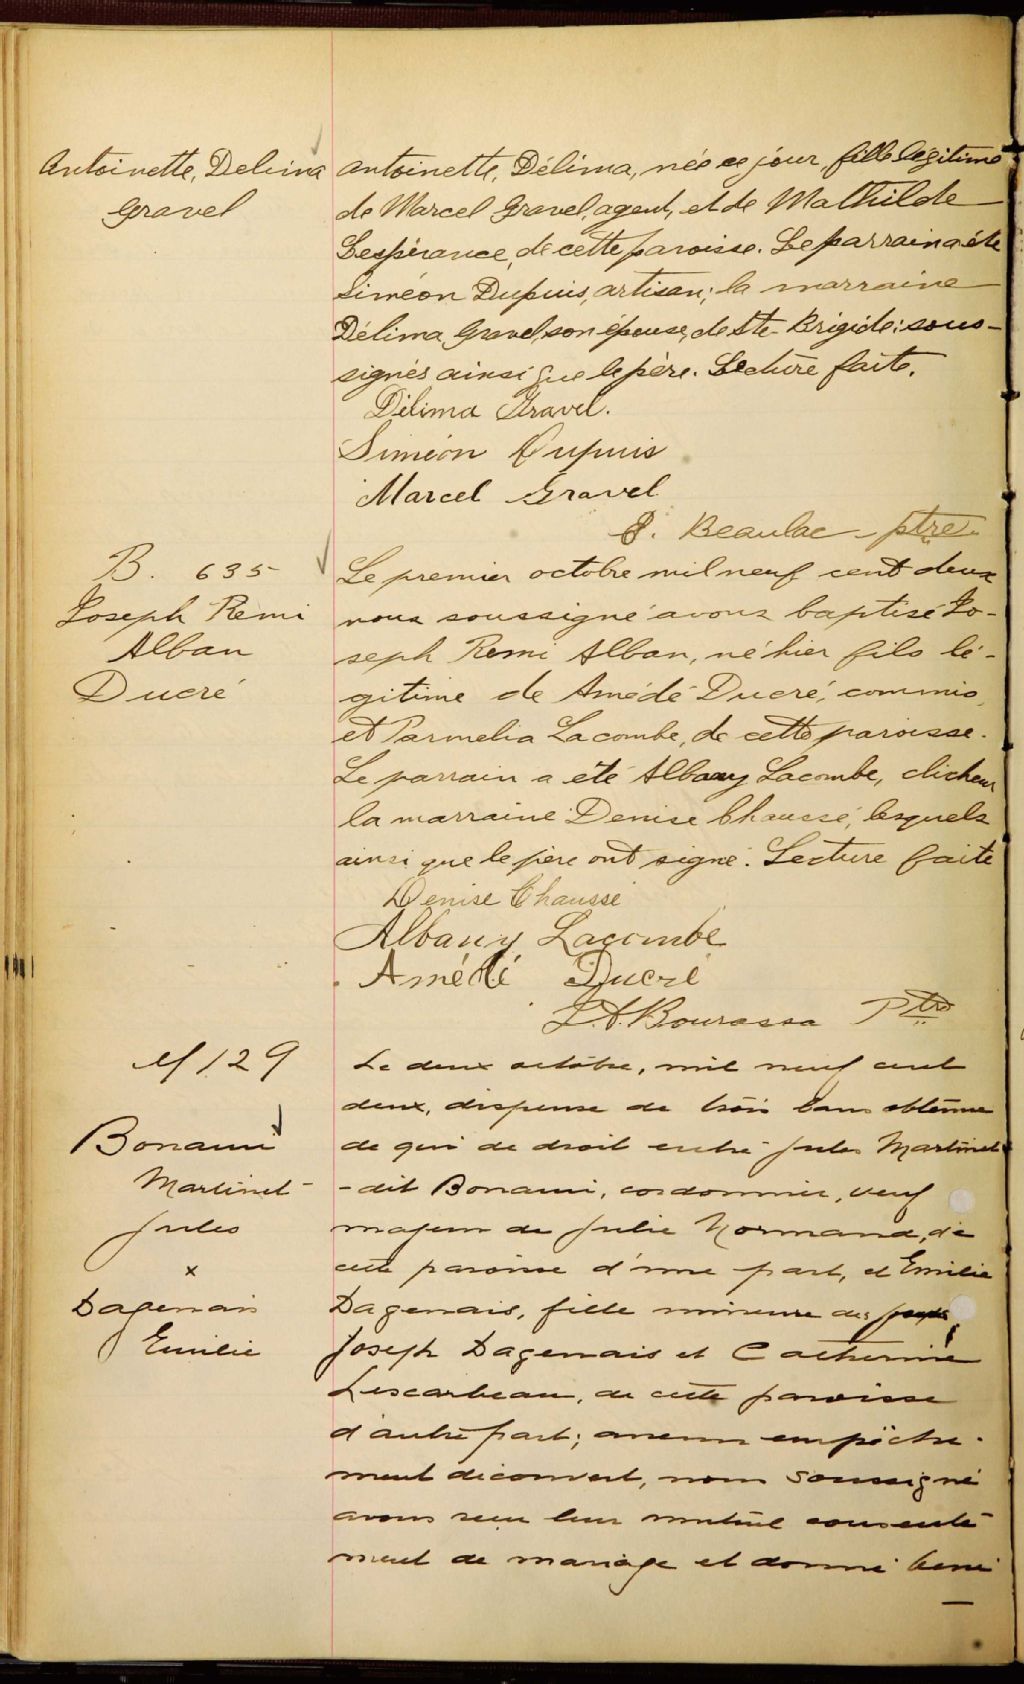 Antoinette, Delima
Gravel
Antoinette, Délima, née ce jour, fille légitime
de Marcel Gravel, agent, et de Mathilde
Lespérance, de cette paroisse. Le parrain a été
Siméon Dupuis, artisan; la marraine
Délima Gravel, son épouse, de Ste Brigide: sous-
signés ainsi que le père. Lecture faite.
Délima Gravel.
Siméon Dupuis
Marcel Gravel
Beaulac ptre
B. 635
Joseph Remi
Alban
Ducré
Le premier octobre mil neuf cent deux
nous soussigné avons baptisé Jo-
seph Remi Alban, né hier fils lé-
gitime de Amédé Ducré, commis,
et Parmelia Lacombe, de cette paroisse.
Le parrain a été Albany Lacombe, clicheur
la marraine Denise Chaussé, lesquels
ainsi que le père ont signé. Lecture faite
Denise Chaussé
Albany Lacombe
Amédé Ducré
L.A. Bourassa Ptre
M 129
Bonami
Martinet-
Jules
x
Dagenais
Emilie
Le deux octobre, mil neuf cent
deux, dispense de trois bans obtenue
de qui de droit entre Jules Martinet
-dit Bonami, cordonnier, veuf
majeur de Julie Normand, de
cette paroisse d'une part, et Emilie
Dagenais, fille mineure de
Joseph Dagenais et Catherine
Lescarbeau, de cette paroisse
d'autre part; aucun empêche-
ment découvert, nous soussigné
avons reçu leur mutuel consente
ment de mariage et donné béné